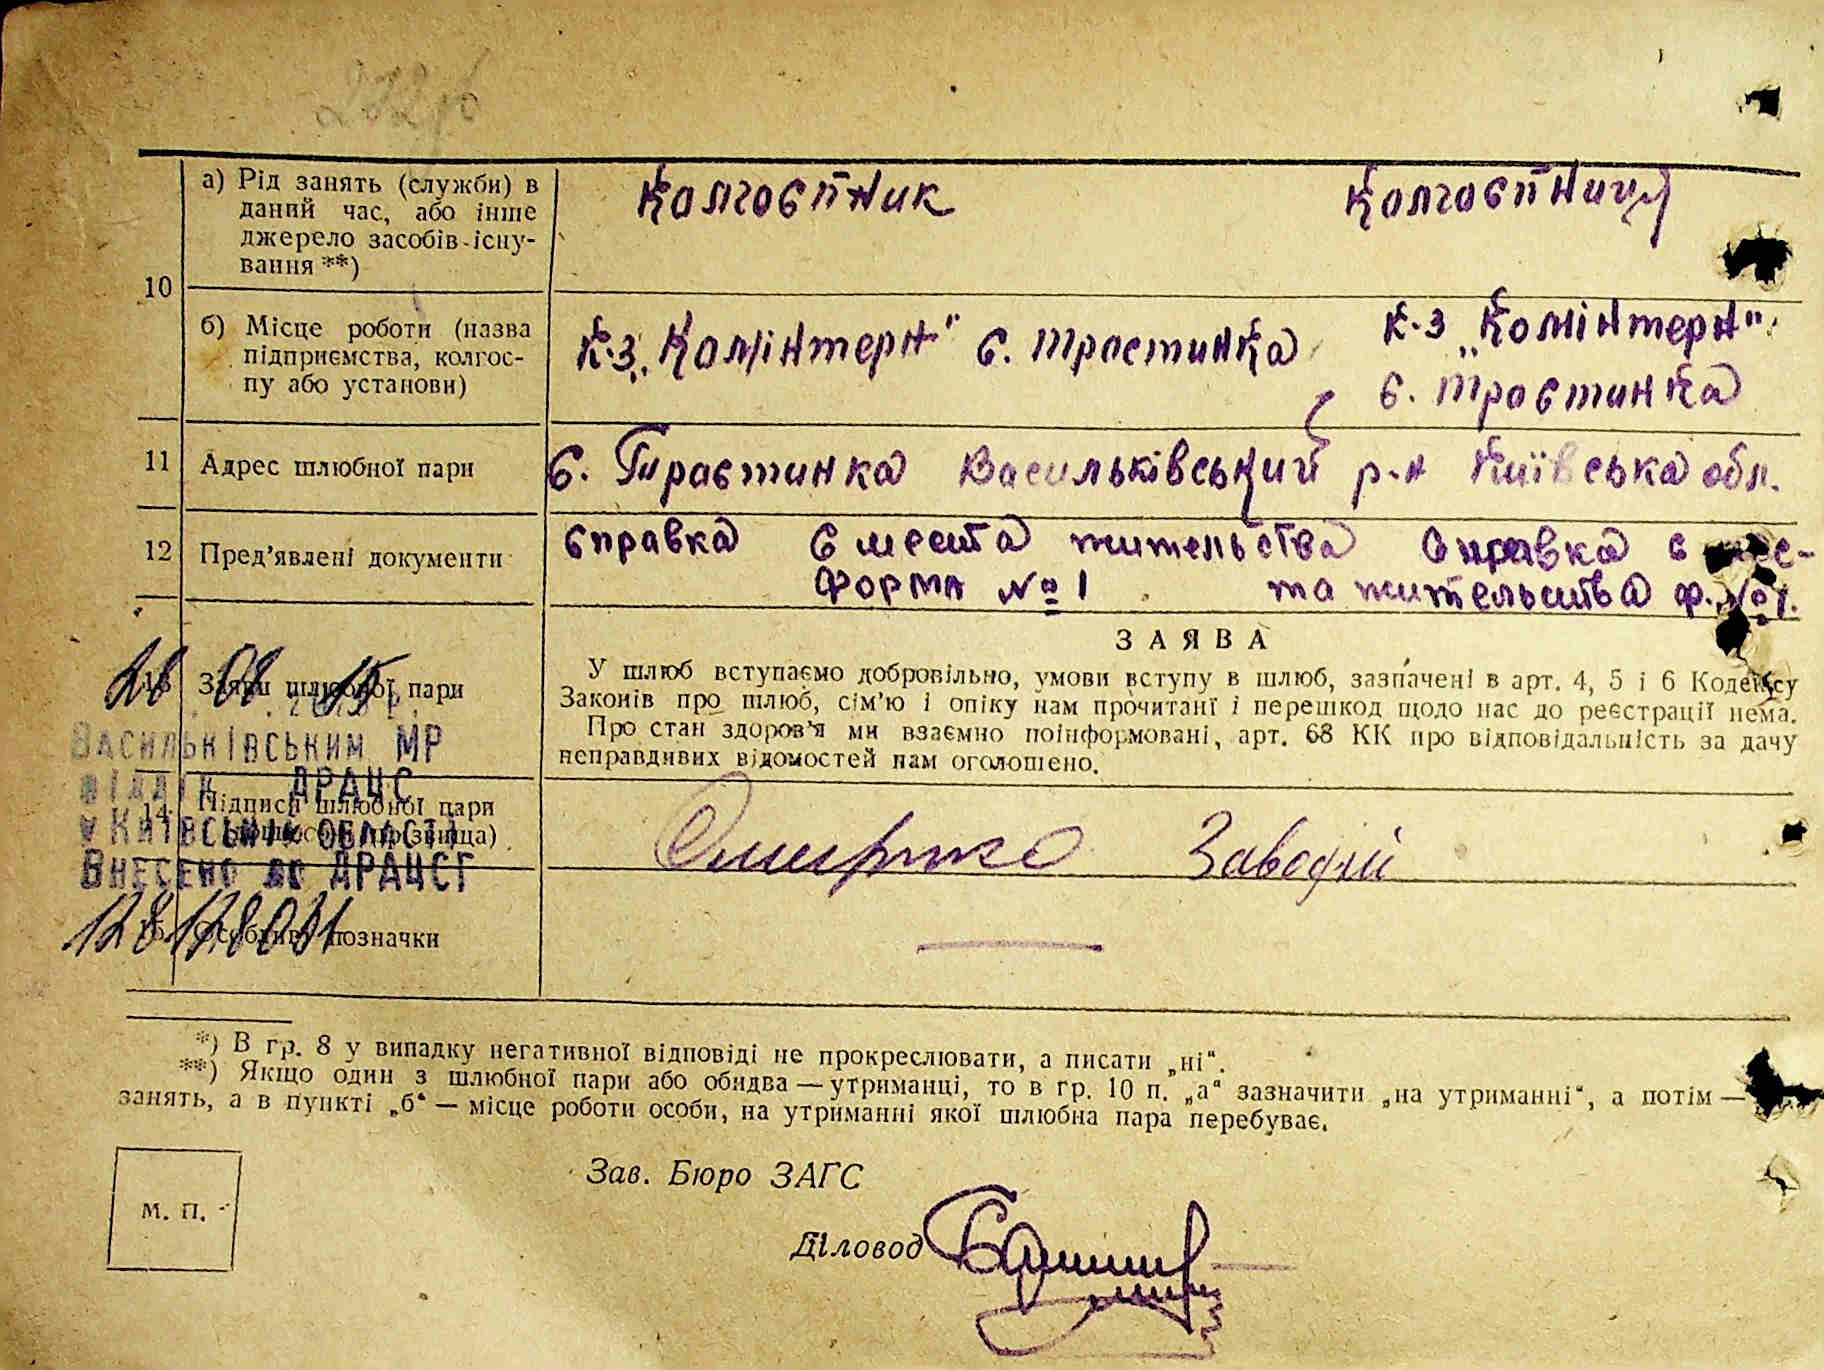 10
а) Рід занять (служби) в
даний час, або інше
джерело засобів існу-
вання **)
Колгоспник
Колгоспниця
б) Місце роботи (назва
підприємства, колгос-
пу або установи)
К-з „Комінтерн" с. Тростинка
К-з „Комінтерн"
с. Тростинка
11 Адрес шлюбної пари
с. Тростинка Васильківський р-н Київська обл.
12 Пред'явлені документи
справка с места жительства
форма № 1
Справка с мес-
та жительства ф. № 1.
ЗАЯВА
пари
У шлюб вступаємо добровільно, умови вступу в шлюб, зазначені в арт. 4, 5 і 6 Кодексу
Законів про шлюб, сім'ю і опіку нам прочитані і перешкод щодо нас до реєстрації нема.
Про стан здоров'я ми взаємно поінформовані, арт. 68 КК про відповідальність за дачу
неправдивих відомостей нам оголошено.
Васильківським МР
відділ ДРАЦС
14 Підписи шлюбної пари
у Київській області
Внесено до ДРАЦСГ
позначки
*) В гр. 8 у випадку негативної відповіді не прокреслювати, а писати „ні".
**) Якщо один з шлюбної пари або обидва — утриманці, то в гр. 10 п. „а" зазначити „на утриманні", а потім —
занять, а в пункті „б" — місце роботи особи, на утриманні якої шлюбна пара перебуває.
Зав. Бюро ЗАГС
м. п.
Діловод